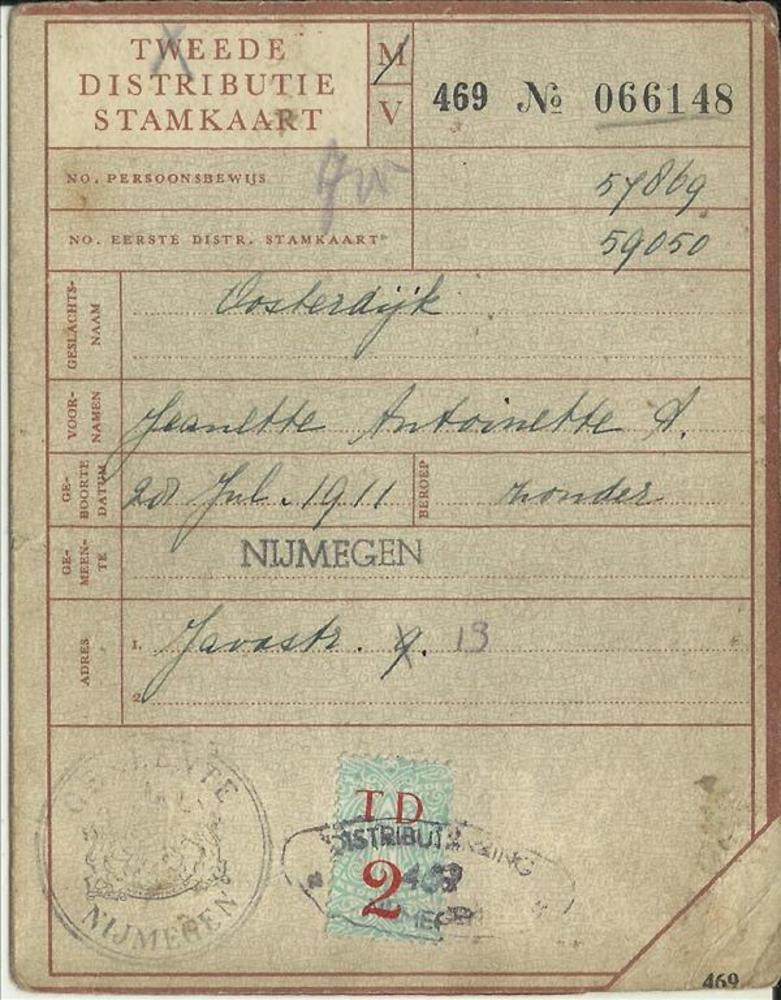 TWEEDE
DISTRIBUTIE
STAMKAART
M
V
469 № 066148
NO. PERSOONSBEWIJS
57869
NO. EERSTE DISTR. STAMKAART
59050
GESLACHTS-
NAAM
Oosterdijk
VOOR-
NAMEN
Jeanette Antoinette A.
GE-
BOORTE
DATUM
Jul. 1911
BEROEP
zonder
GE-
MEEN-
TE
NIJMEGEN
ADRES
1. Javastr. 9. 13
2.
GEMEENTE
NIJMEGEN
TD
2
DISTRIBUTIEKRING
469
NIJMEGEN
469